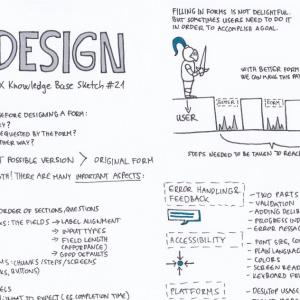 DESIGN
X Knowledge Base Sketch #21
FILLING IN FORMS IS NOT DELIGHTFUL.
BUT SOMETIMES USERS NEED TO DO IT
IN ORDER TO ACCOMPLISH A GOAL.
WITH BETTER FORM
WE CAN MAKE THIS PA
USER
BETTER
FORM
STEPS NEEDED TO BE TAKEN TO REAC
BEFORE DESIGNING A FORM:
Y?
REQUESTED BY THE FORM?
THER WAY?
T POSSIBLE VERSION > ORIGINAL FORM
TH! THERE ARE MANY IMPORTANT ASPECTS:
ORDER OF SECTIONS/QUESTIONS
NS: THE FIELDS → LABEL ALIGNMENT
→ INPUT TYPES
→ FIELD LENGTH
(AFFORDANCE)
→ GOOD DEFAULTS
MS: CHUNKS / STEPS / SCREENS
KS, BUTTONS)
WHAT TO EXPECT (ES COMPLETION TIME)
ERROR HANDLING &
FEEDBACK
– TWO PARTS
– VALIDATION
– ADDING DELI
– PROGRESS IND
– ERROR MESSA
ACCESSIBILITY
– FONT SIZE, CO
– PLAIN LANGUAG
– COLORS
– SCREEN READ
– KEYBOARD
PLATFORMS
– DESKTOP USAG